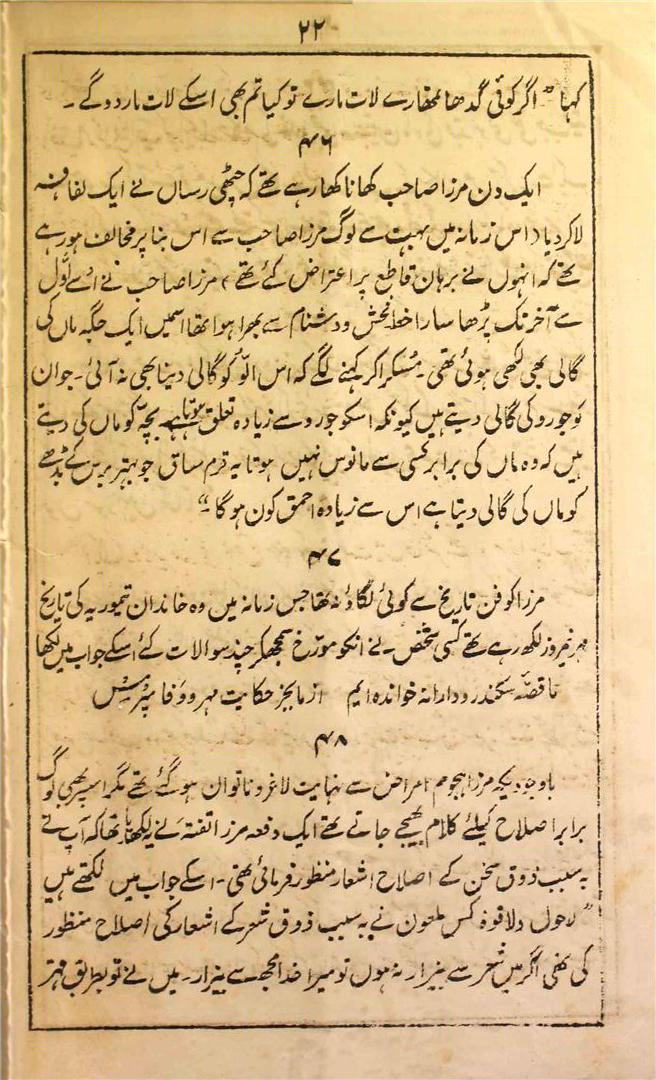 ۲۲
کہا "اگر کوئی گدھا تمھارے لات مارے تو کیا تم بھی اسکے لات ماردو گے ۔
۴۶
ایک دن مرزا صاحب کھانا کھا رہے تھے کہ چٹھی رساں نے ایک لفافہ
لاکر دیا (اس زمانہ میں بہت سے لوگ مرزا صاحب سے اس بنا پر مخالف ہو رہے
تھے کہ انہوں نے برہان قاطع پر اعتراض کئے تھے) مرزا صاحب نے اُسے اوّل
سے آخر تک پڑھا سارا خط فحش ودشنام سے بھرا ہوا تھا اسمیں ایک جگہ ماں کی
گالی بھی لکھی ہوئی تھی ۔ مُسکرا کر کہنے لگے کہ اس الّو کو گالی دینا بھی نہ آئی ۔ جوان
کو جورو کی گالی دیتے ہیں کیونکہ اسکو جورو سے زیادہ تعلق ہوتا ہے بچہ کو ماں کی دیتے
ہیں کہ وہ ماں کی برابر کسی سے مانوس نہیں ہوتا یہ قرم ساق جو بہتر برس کے بڈھے
کو ماں کی گالی دیتا ہے اس سے زیادہ احمق کون ہوگا ۔"
۴۷
مرزا کو فن تاریخ سے کوئی لگاؤ نہ تھا جس زمانہ میں وہ خاندان تیموریہ کی تاریخ
مہر نیمروز لکھ رہے تھے کسی شخص نے انکو مورّخ سمجھکر چند سوالات کئے اسکے جواب میں لکھا
ما قصّہ سکندر و دارا نہ خواندہ ایم از ما بجز حکایت مہر و وفا مپرس
۴۸
باوجودیکہ مرزا ہجوم امراض سے نہایت لاغر و ناتواں ہو گئے تھے مگر اسپر بھی لوگ
برابر اصلاح کیلئے کلام بھیجے جاتے تھے ایک دفعہ مرزا تفتہ نے لکھا تھا کہ آپ نے
بہ سبب ذوق سخن کے اصلاح اشعار منظور فرمائی تھی ۔ اسکے جواب میں لکھتے ہیں
"لاحول ولاقوۃ کس ملعون نے بہ سبب ذوق شعر کے اشعار کی اصلاح منظور
کی تھی اگر میں شعر سے بیزار نہ ہوں تو میرا خدا مجھ سے بیزار ۔ میں نے تو بطریق قہر